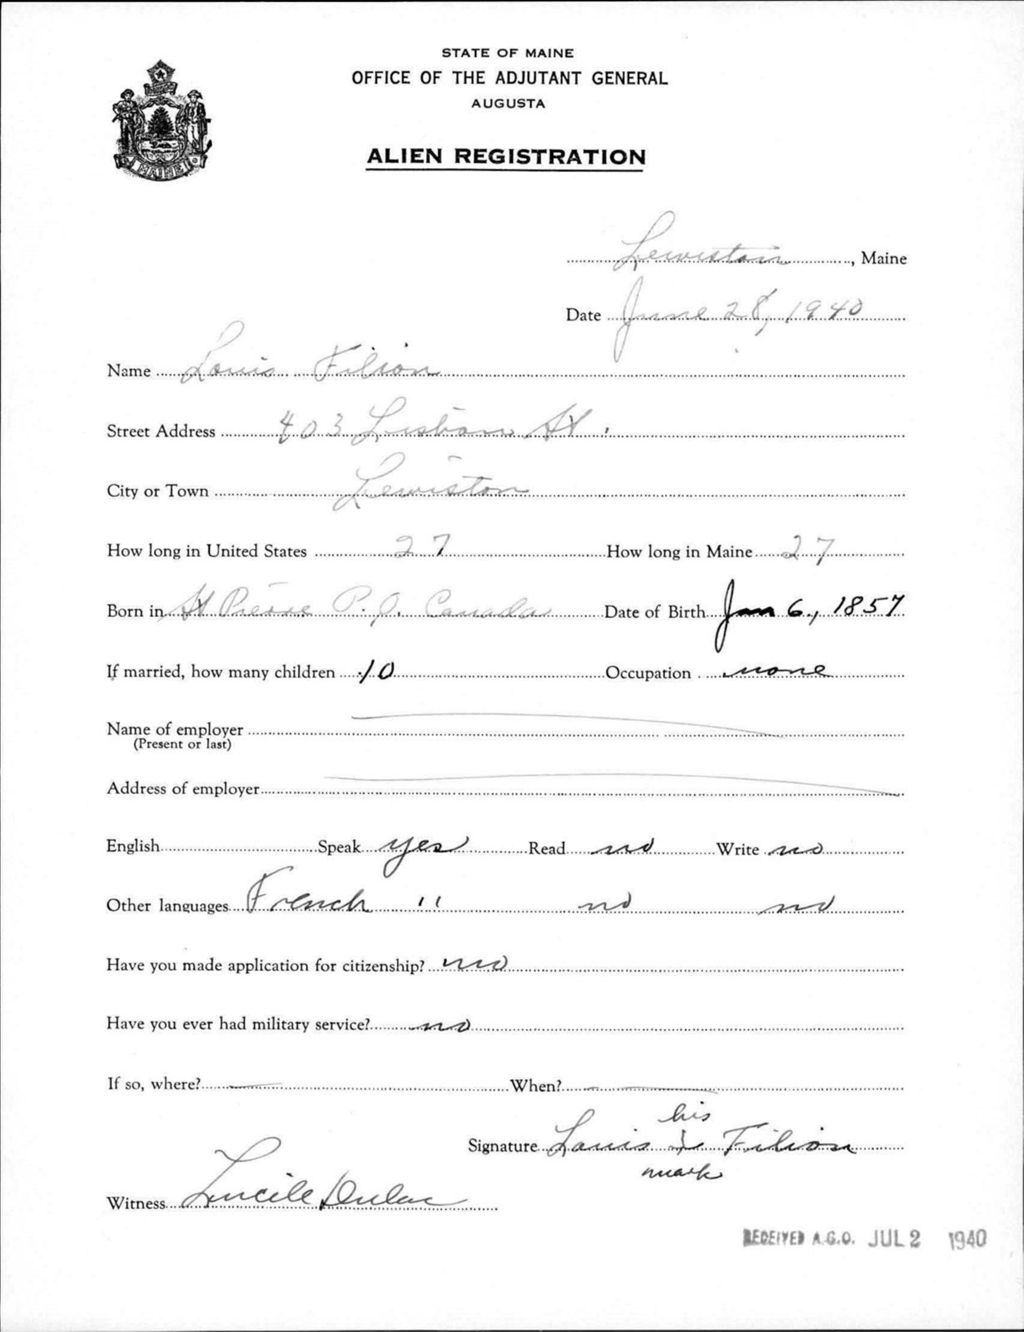 STATE OF MAINE
OFFICE OF THE ADJUTANT GENERAL
AUGUSTA
ALIEN REGISTRATION
Lewiston, Maine
Date June 28, 1940
Name Louis Filion
Street Address 403 Lisbon St.
City or Town Lewiston
How long in United States 27 How long in Maine 27
Born in St Pierre P.Q. Canada Date of Birth Jan 6, 1857
If married, how many children 10 Occupation none
Name of employer
(Present or last)
Address of employer
English Speak yes Read no Write no
Other languages French " no no
Have you made application for citizenship? no
Have you ever had military service? no
If so, where? When?
his
Signature Louis x Filion
mark
Witness Lucile Dulac
RECEIVED A.G.O. JUL 2 1940